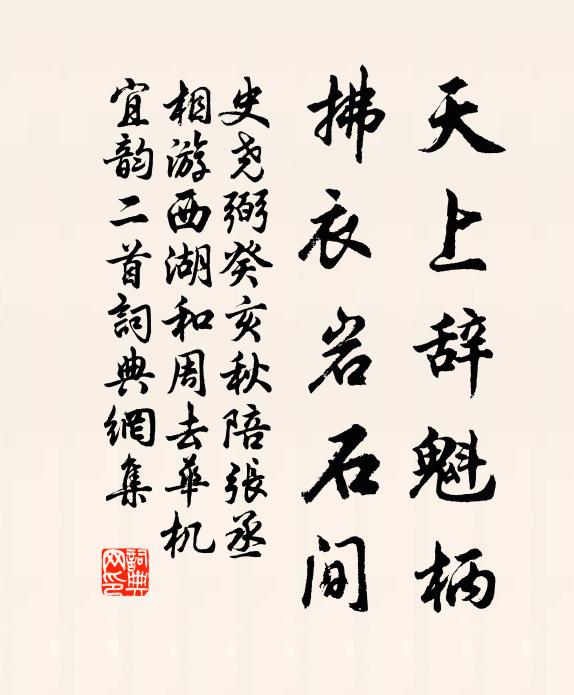 天上辞魁柄
拂衣岩石间
史尧弼癸亥秋陪張丞
相游西湖和周去華机
宜韵二首詞典網集
詞典网印